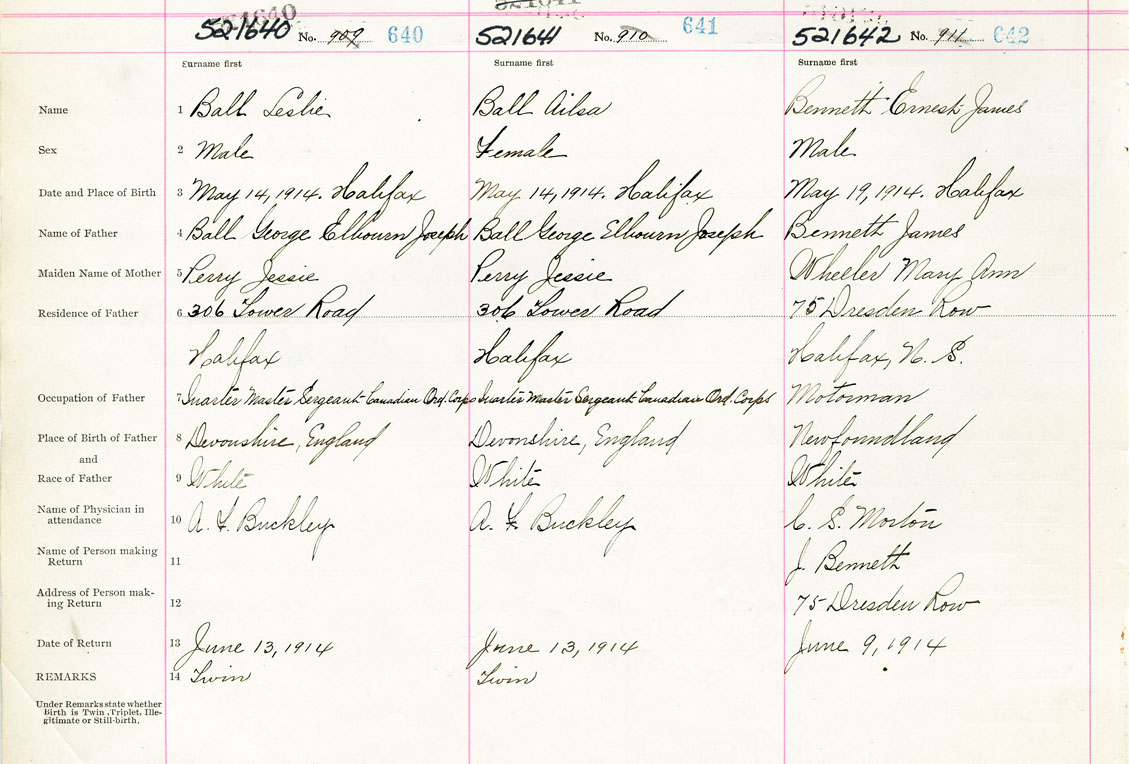 521640 No. 909 640 521641 No. 910 641 521642 No. 911 642
Surname first Surname first Surname first
Name 1 Ball Leslie Ball Ailsa Bennett Ernest James
Sex 2 Male Female Male
Date and Place of Birth 3 May 14, 1914. Halifax May 14, 1914. Halifax May 19, 1914. Halifax
Name of Father 4 Ball George Elbourn Joseph Ball George Elbourn Joseph Bennett James
Maiden Name of Mother 5 Perry Jessie Perry Jessie Wheeler Mary Ann
Residence of Father 6 306 Tower Road 306 Tower Road 75 Dresden Row
Halifax Halifax Halifax, N. S.
Occupation of Father 7 Quarter Master Sergeant Canadian Ord. Corps Quarter Master Sergeant Canadian Ord. Corps Motorman
Place of Birth of Father 8 Devonshire, England Devonshire, England Newfoundland
and
Race of Father 9 White White White
Name of Physician in
attendance 10 A. F. Buckley A. F. Buckley C. S. Morton
Name of Person making
Return 11 J. Bennett
Address of Person mak-
ing Return 12 75 Dresden Row
Date of Return 13 June 13, 1914 June 13, 1914 June 9, 1914
REMARKS 14 Twin Twin
Under Remarks state whether
Birth is Twin, Triplet, Ille-
gitimate or Still-birth.